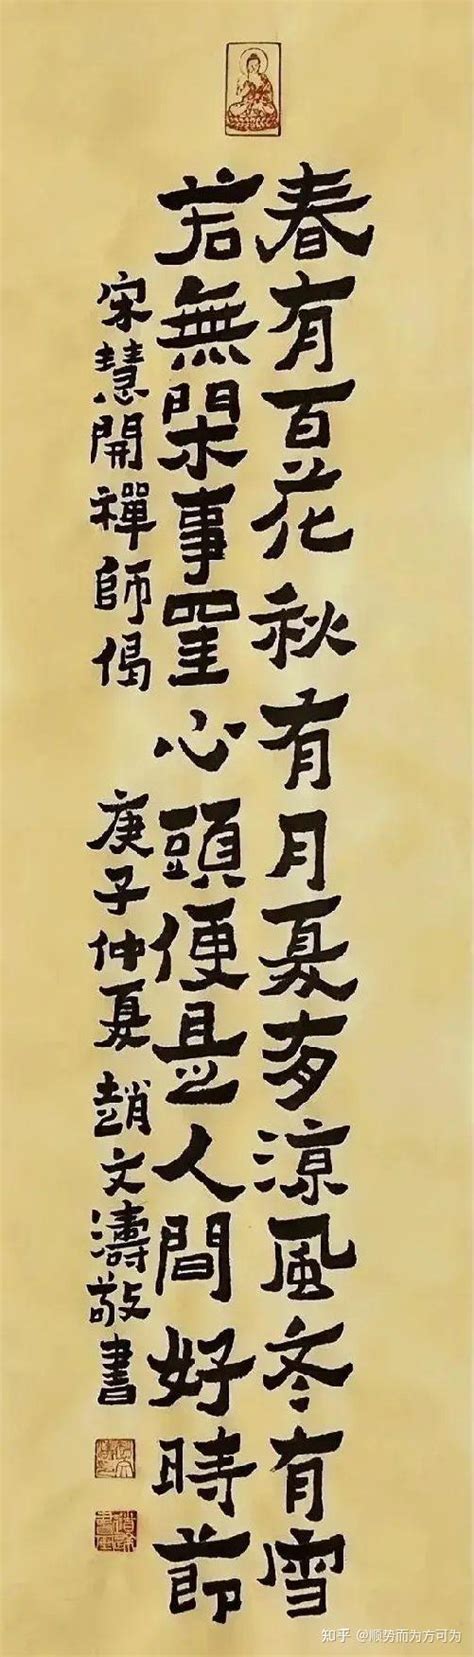 春有百花秋有月夏有涼風冬有雪
若無閑事罣心頭便是人間好時節
宋慧開禪師偈 庚子仲夏趙文濤敬書
知乎 @顺势而为方可为